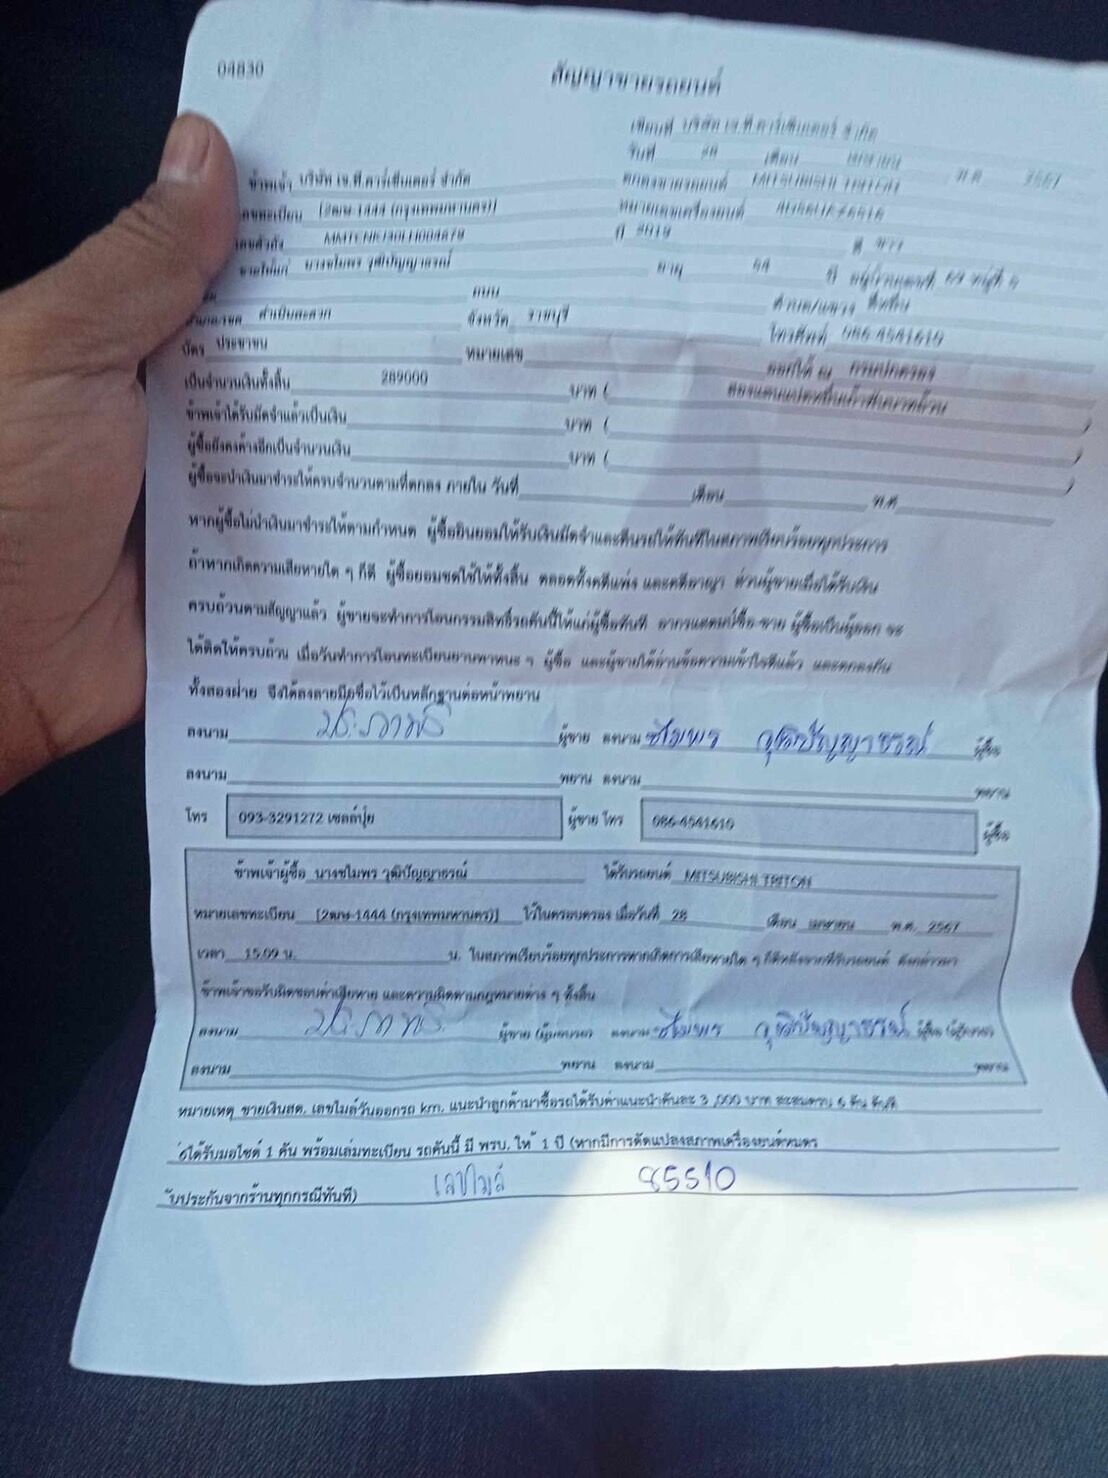 04830
สัญญาขายรถยนต์
เขียนที่ บริษัท เจ.ที.คาร์เซ็นเตอร์ จำกัด
วันที่ 28 เดือน เมษายน พ.ศ. 2567
ข้าพเจ้า บริษัท เจ.ที.คาร์เซ็นเตอร์ จำกัด ตกลงขายรถยนต์ MITSUBISHI TRITON
เลขทะเบียน [2ฒษ-1444 (กรุงเทพมหานคร)] หมายเลขเครื่องยนต์
เลขตัวถัง ปี 2019 สี ขาว
ขายให้แก่ นางชไมพร วุฒิปัญญาธรณ์ อายุ 54 ปี
ถนน ตำบล/แขวง
อำเภอ/เขต ดำเนินสะดวก จังหวัด ราชบุรี โทรศัพท์ 086-4541610
บัตร ประชาชน หมายเลข ออกให้ ณ กรมปกครอง
เป็นจำนวนเงินทั้งสิ้น 289000 บาท ( สองแสนแปดหมื่นเก้าพันบาทถ้วน )
ข้าพเจ้าได้รับมัดจำแล้วเป็นเงิน บาท ( )
ผู้ซื้อยังคงค้างอีกเป็นจำนวนเงิน บาท ( )
ผู้ซื้อจะนำเงินมาชำระให้ครบจำนวนตามที่ตกลง ภายใน วันที่ เดือน พ.ศ.
หากผู้ซื้อไม่นำเงินมาชำระให้ตามกำหนด ผู้ซื้อยินยอมให้ริบเงินมัดจำและคืนรถให้ทันทีในสภาพเรียบร้อยทุกประการ
ถ้าหากเกิดความเสียหายใด ๆ ก็ดี ผู้ซื้อยอมชดใช้ให้ทั้งสิ้น ตลอดทั้งคดีแพ่ง และคดีอาญา ส่วนผู้ขายเมื่อได้รับเงิน
ครบถ้วนตามสัญญาแล้ว ผู้ขายจะทำการโอนกรรมสิทธิ์รถคันนี้ให้แก่ผู้ซื้อทันที อากรแสตมป์ซื้อ-ขาย ผู้ซื้อเป็นผู้ออก จะ
ได้ติดให้ครบถ้วน เมื่อวันทำการโอนทะเบียนยานพาหนะ ๆ ผู้ซื้อ และผู้ขายได้อ่านข้อความเข้าใจดีแล้ว และตกลงกัน
ทั้งสองฝ่าย จึงได้ลงลายมือชื่อไว้เป็นหลักฐานต่อหน้าพยาน
ลงนาม ผู้ขาย ลงนาม ชไมพร วุฒิปัญญาธรณ์ ผู้ซื้อ
ลงนาม พยาน ลงนาม พยาน
โทร 093-3291272 เซลล์ปุ๋ย ผู้ขาย โทร 086-4541610 ผู้ซื้อ
ข้าพเจ้าผู้ซื้อ นางชไมพร วุฒิปัญญาธรณ์ ได้รับรถยนต์ MITSUBISHI TRITON
หมายเลขทะเบียน [2ฒษ-1444 (กรุงเทพมหานคร)] ไว้ในครอบครอง เมื่อวันที่ 28 เดือน เมษายน พ.ศ. 2567
เวลา 15.09 น. น. ในสภาพเรียบร้อยทุกประการหากเกิดการเสียหายใด ๆ ก็ดีหลังจากที่รับรถยนต์ ดังกล่าวมา
ข้าพเจ้าขอรับผิดชอบค่าเสียหาย และความผิดตามกฎหมายต่าง ๆ ทั้งสิ้น
ลงนาม ผู้ขาย (ผู้มอบรถ) ลงนาม ชไมพร วุฒิปัญญาธรณ์ ผู้ซื้อ (ผู้รับรถ)
ลงนาม พยาน ลงนาม พยาน
หมายเหตุ ขายเงินสด, เลขไมล์วันออกรถ km, แนะนำลูกค้ามาซื้อรถได้รับค่าแนะนำคันละ 3,000 บาท สะสมครบ 6 คัน
ได้รับมอไซต์ 1 คัน พร้อมเล่มทะเบียน รถคันนี้ มี พรบ. ให้ 1 ปี (หากมีการดัดแปลงสภาพเครื่องยนต์หมด
รับประกันจากร้านทุกกรณีทันที) เลขไมล์ 85510